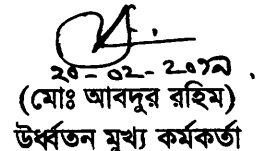 ২০-০২-২০১৯
(মোঃ আবদুর রহিম)
উর্ধ্বতন মুখ্য কর্মকর্তা